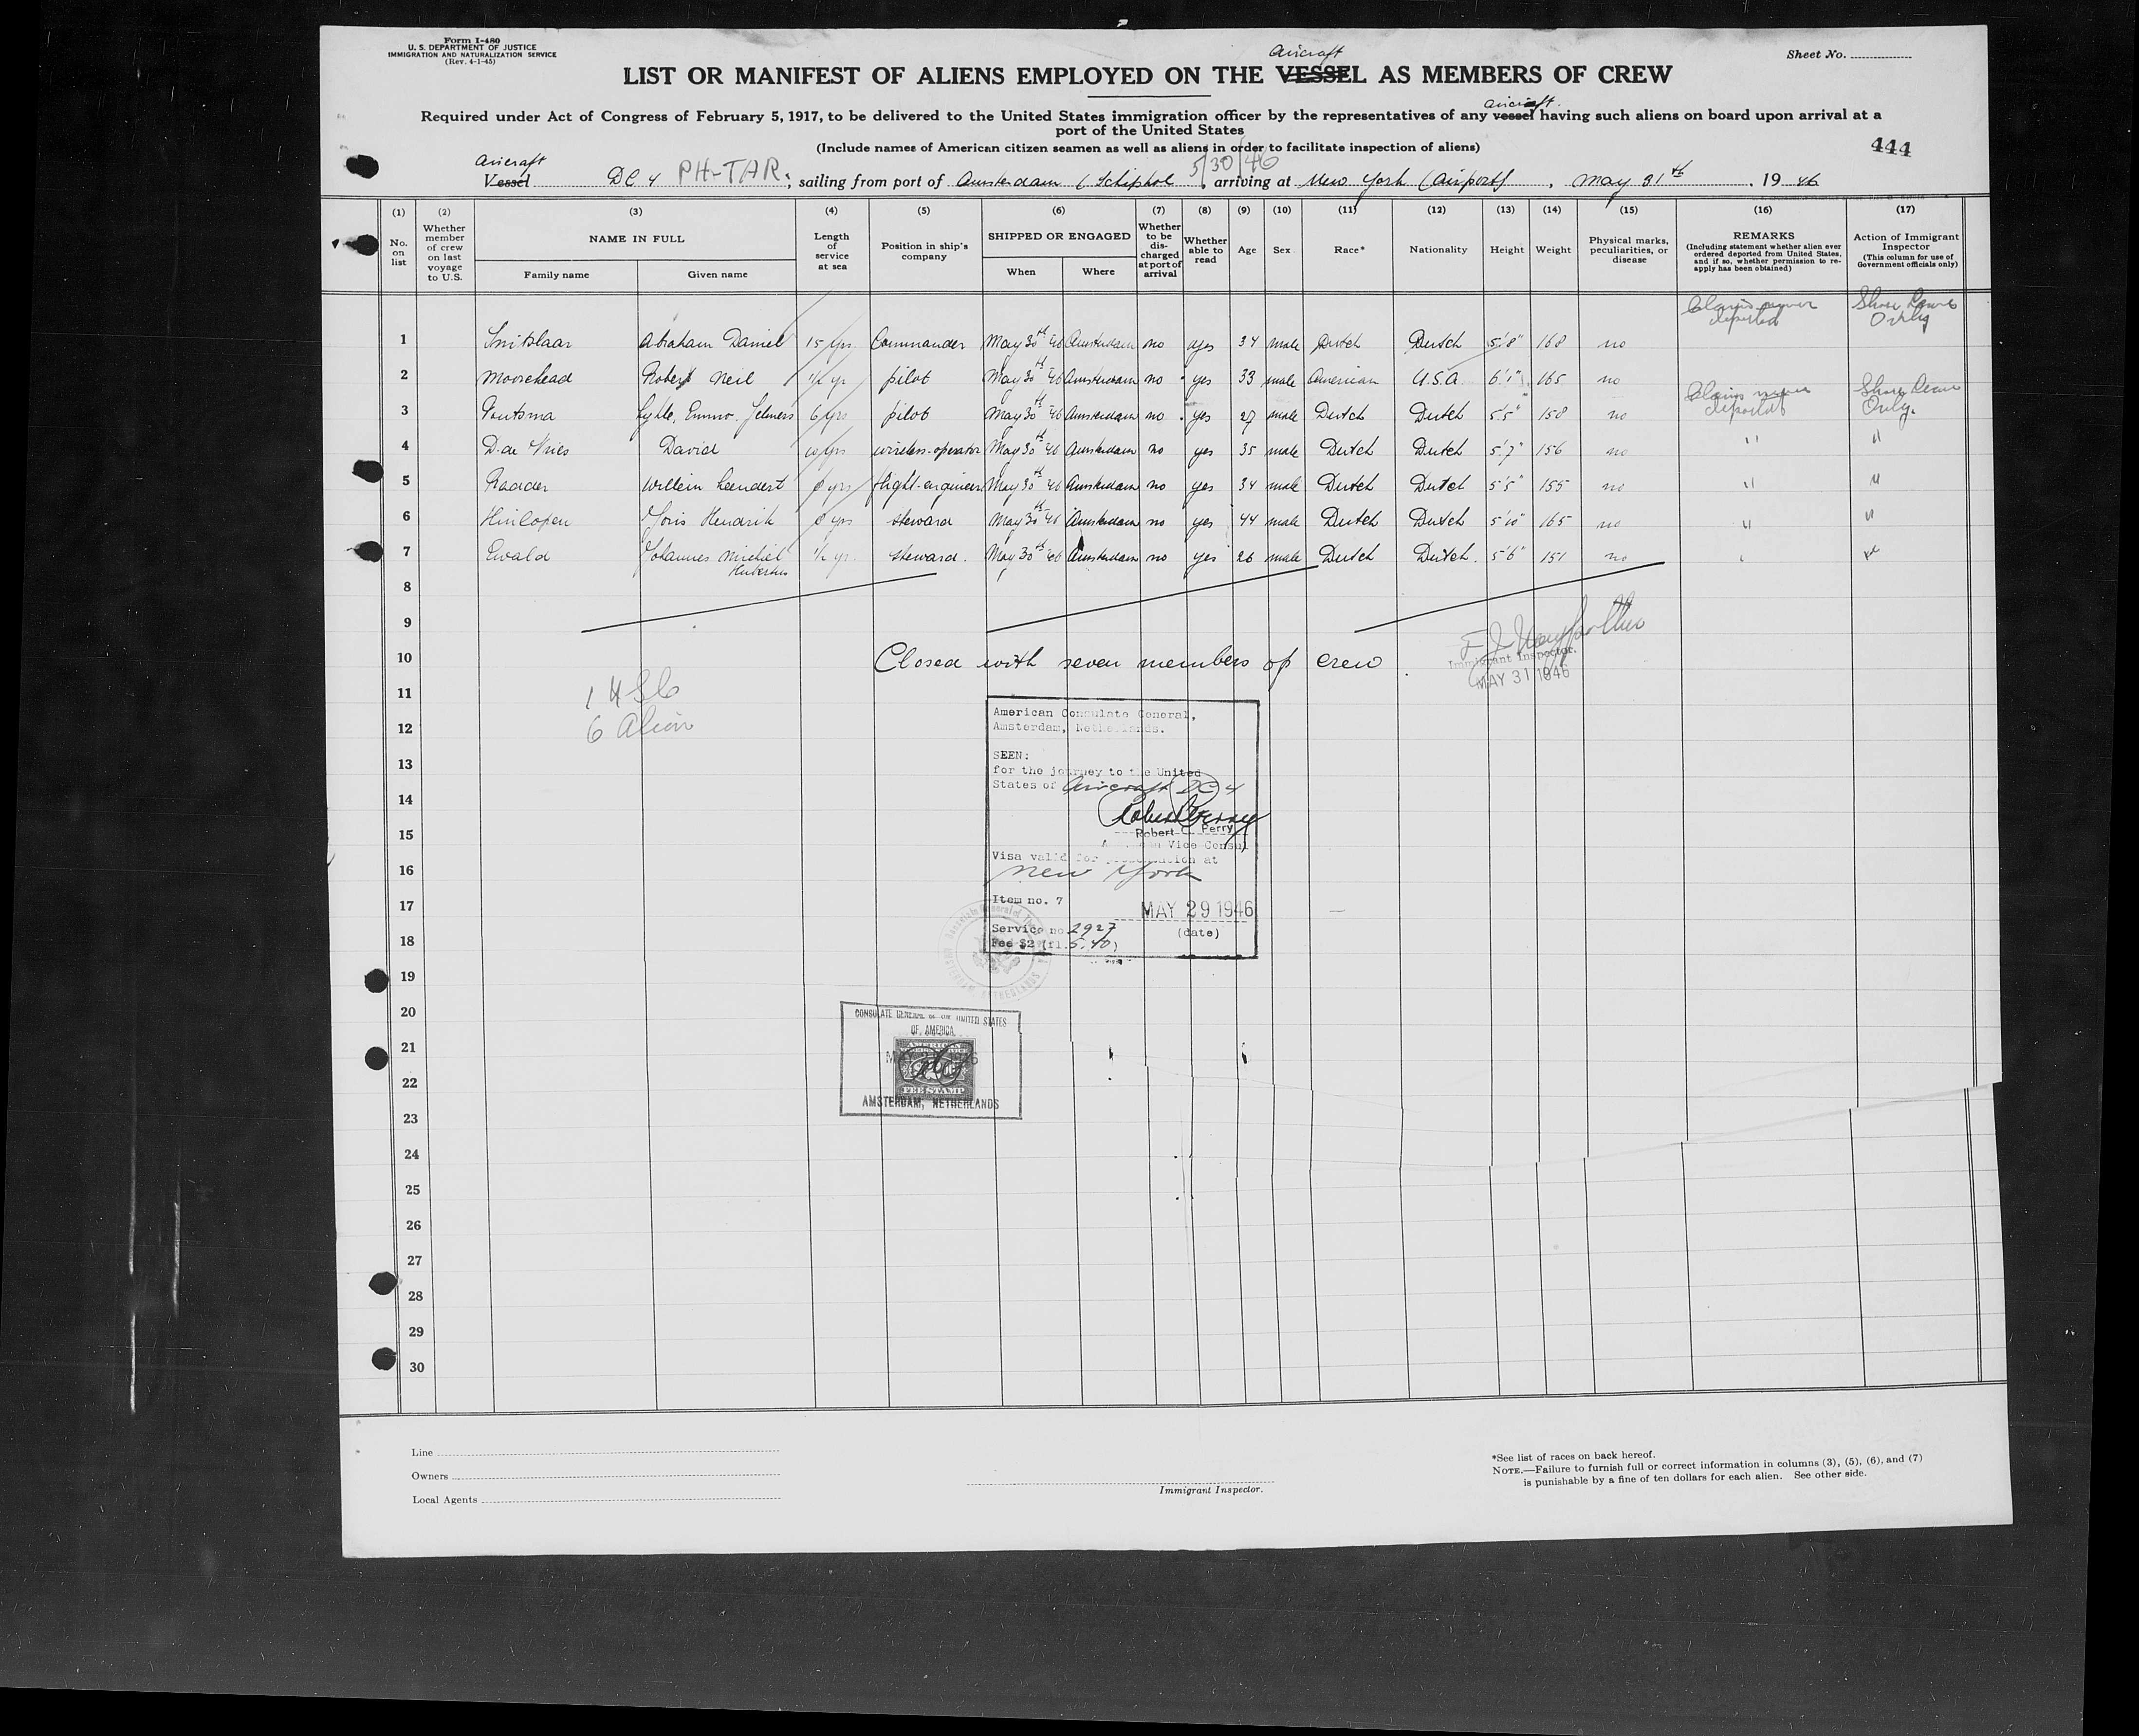 Form I-480
U. S. DEPARTMENT OF JUSTICE
IMMIGRATION AND NATURALIZATION SERVICE
(Rev. 4-1-45)
Sheet No.
Aircraft
LIST OR MANIFEST OF ALIENS EMPLOYED ON THE VESSEL AS MEMBERS OF CREW
Aircraft
Required under Act of Congress of February 5, 1917, to be delivered to the United States immigration officer by the representatives of any vessel having such aliens on board upon arrival at a
port of the United States
(Include names of American citizen seamen as well as aliens in order to facilitate inspection of aliens)
444
Aircraft 5/30/46
Vessel DC 4 PH-TAR; sailing from port of Amsterdam (Schiphol, arriving at New York (Airport), May 31th, 19 46
(1) (2) (3) (4) (5) (6) (7) (8) (9) (10) (11) (12) (13) (14) (15) (16) (17)
No. on list
Whether member of crew on last voyage to U.S.
NAME IN FULL
Family name Given name
Length of service at sea
Position in ship's company
SHIPPED OR ENGAGED
When Where
Whether to be discharged at port of arrival
Whether able to read
Age Sex Race* Nationality Height Weight
Physical marks, peculiarities, or disease
REMARKS
(Including statement whether alien ever ordered deported from United States, and if so, whether permission to re-apply has been obtained)
Action of Immigrant Inspector
(This column for use of Government officials only)
Claims never deported Shore Leave Only
1 Abraham Daniel 15 yrs. Commander May 30th 46 Amsterdam no yes 34 male Dutch Dutch 5'8" 168 no
2 Moorehead Robert Neil 1/2 yr pilot May 30th 46 Amsterdam no yes 33 male American U.S.A. 6'1" 165 no
Claims never deported Shore Leave Only.
3 6 yrs pilot May 30th 46 Amsterdam no yes 27 male Dutch Dutch 5'5" 158 no
4 De Vries David 10 yrs wireless-operator May 30th 46 Amsterdam no yes 35 male Dutch Dutch 5'7" 156 no " "
5 Willem Leendert yrs flight-engineer May 30th 46 Amsterdam no yes 34 male Dutch Dutch 5'5" 155 no " "
6 Hinlopen Joris Hendrik yrs steward May 30th 46 Amsterdam no yes 44 male Dutch Dutch 5'10" 165 no " "
7 Ewald Johannes Michiel Hubertus 1/2 yr. steward. May 30th 46 Amsterdam no yes 26 male Dutch Dutch. 5'6" 151 no
8
9
10 Closed with seven members of crew.
Immigrant Inspector.
MAY 31 1946
11
6 Alien
12
13
14
15
16
17
18
19
20
21
22
23
24
25
26
27
28
29
30
American Consulate General,
Amsterdam, Netherlands.
SEEN:
for the journey to the United
States of Aircraft DC 4
Robert C. Perry
American Vice Consul
Visa valid for presentation at
New York
Item no. 7
MAY 29 1946
Service no 2927 (date)
Fee $2 (fl. 5.40)
CONSULATE GENERAL OF THE UNITED STATES
OF AMERICA
AMERICAN
FEE STAMP
AMSTERDAM, NETHERLANDS
Line
Owners
Local Agents
Immigrant Inspector.
*See list of races on back hereof.
NOTE.—Failure to furnish full or correct information in columns (3), (5), (6), and (7)
is punishable by a fine of ten dollars for each alien. See other side.